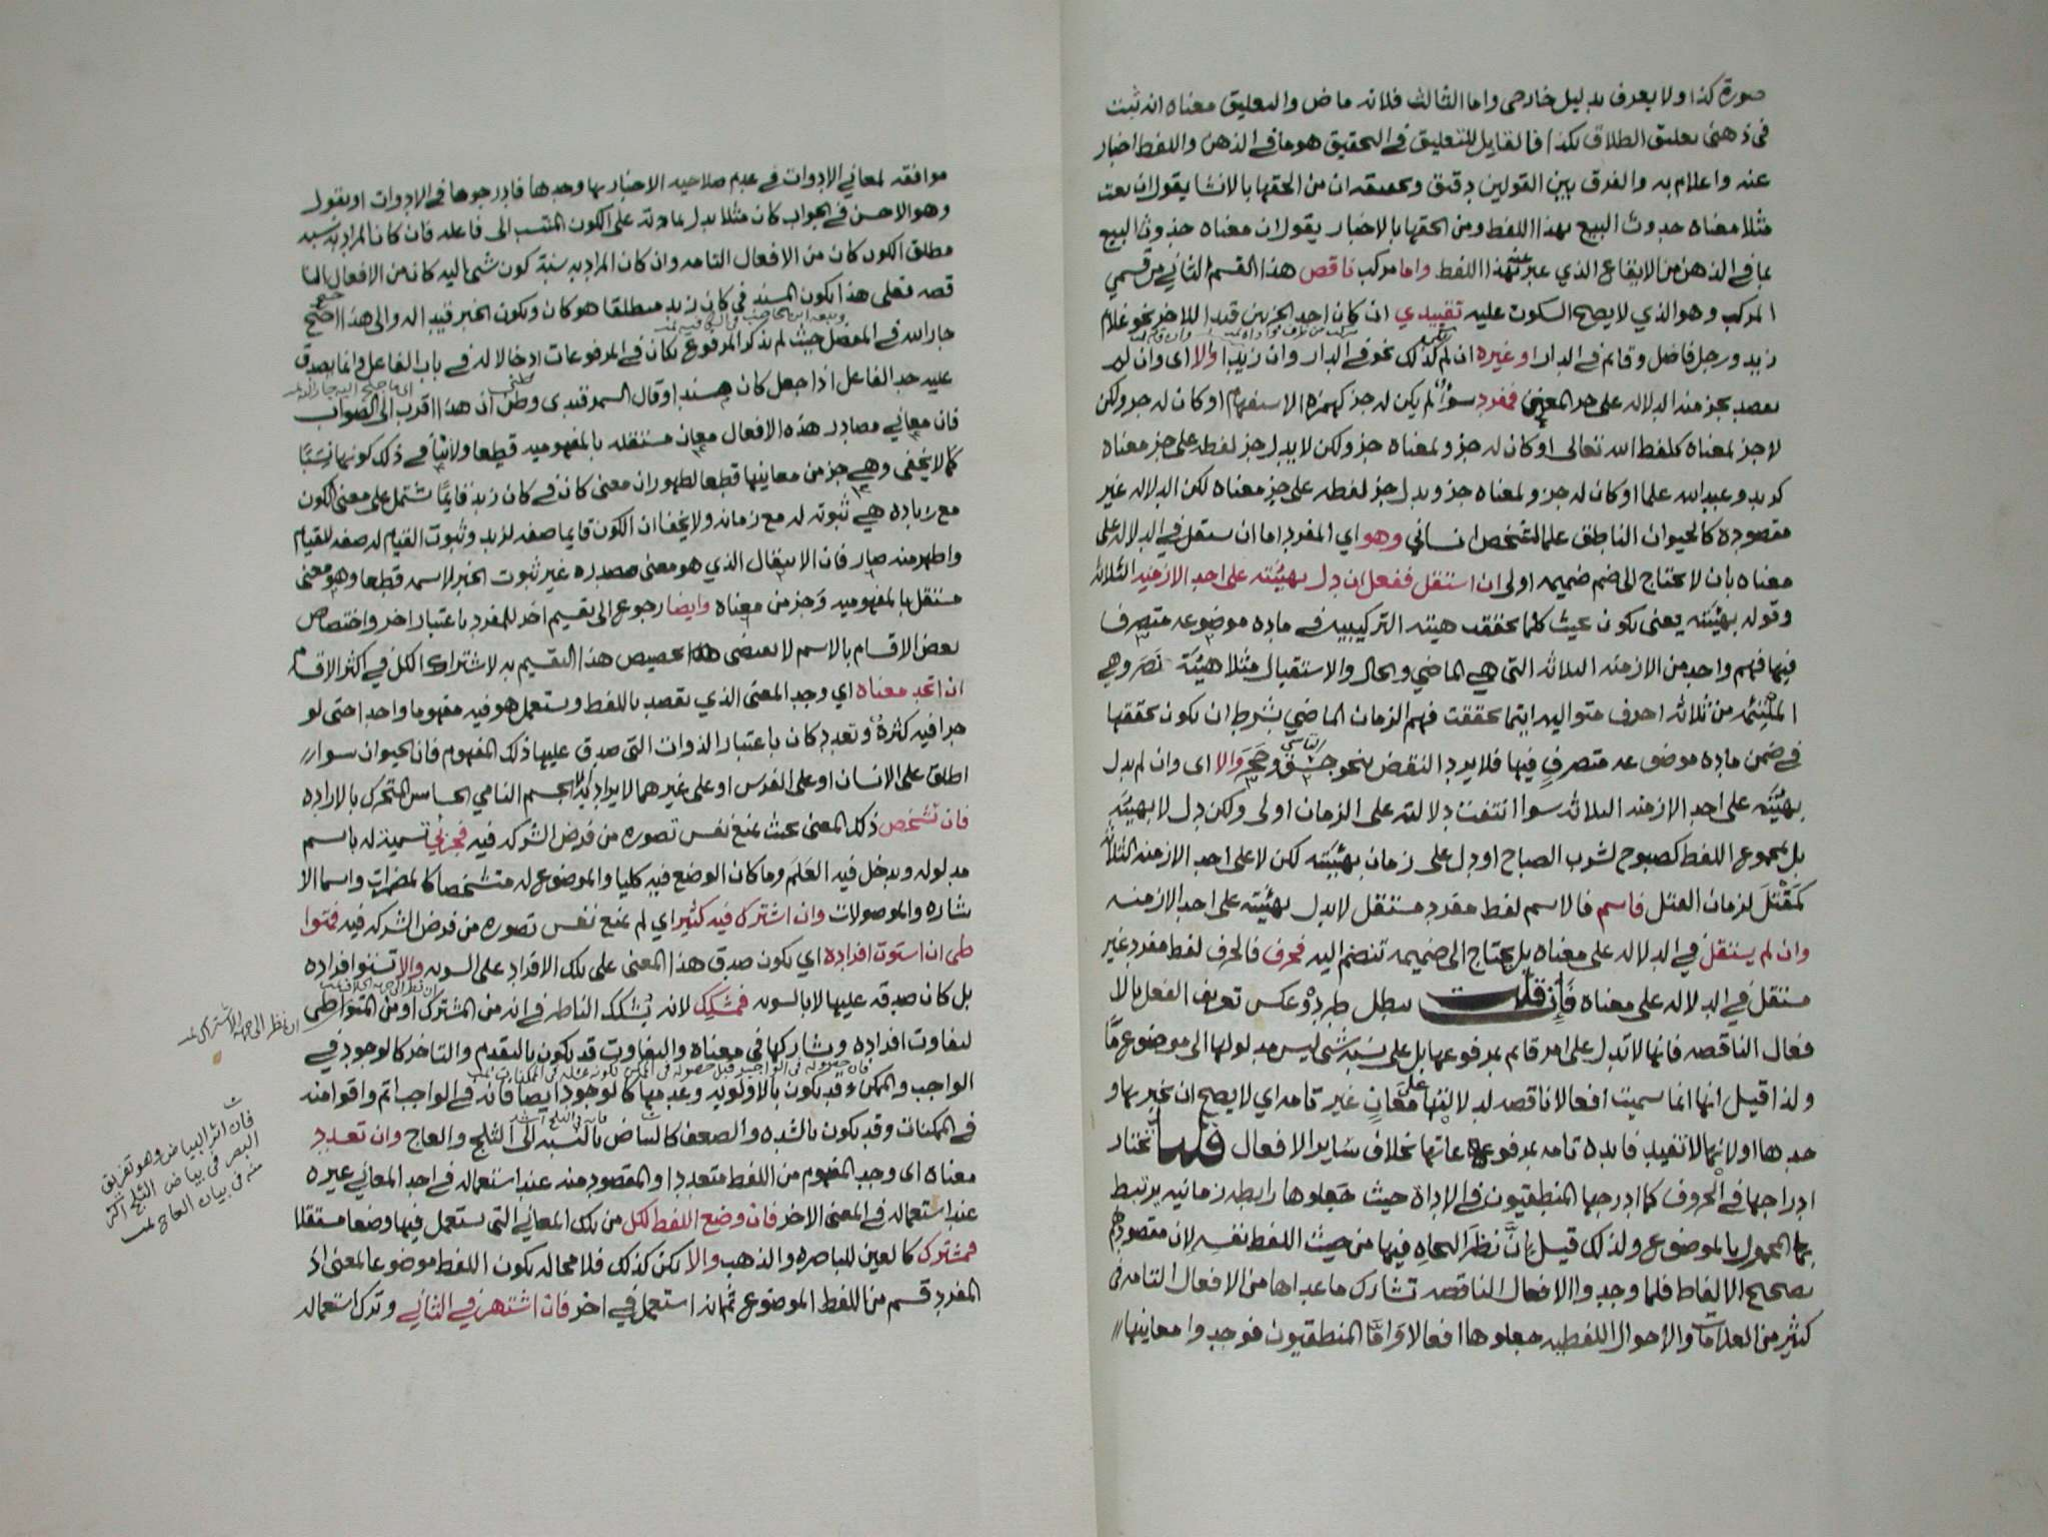 صورة كذا ولا يعرف بدليل خارجى واما الثالث فلانه ماض والتعليق معناه انه ثبت
فى ذهنى تعليق الطلاق بكذا فالقايل للتعليق في التحقيق هو ما في الذهن واللفظ اخبار
عنه واعلام به والفرق بين القولين دقيق وتحقيقه ان من الحقها بالانشا يقول ان بعت
مثلا معناه حدوث البيع بهذا اللفظ ومن الحقها بالاخبار يقول ان معناه حدوث البيع
بما في الذهن من الايقاع الذي عبر عنه بهذا اللفظ واما مركب ناقص هذا القسم الثاني من قسمي
المركب وهو الذي لا يصح السكوت عليه تقييدي ان كان احد الجزين قيدا للاخر نحو غلام
زيد ورجل فاضل وقايم في الدار او غيره ان لم كذلك نحو في الدار وان زيدا والا اى وان لم
يقصد بجز منه الدلاله على جز المعنى فمفرد سوا لم يكن له جز كهمزة الاستفهام او كان له جز ولكن
لا جز لمعناه كلفظ الله تعالى او كان له جز ولمعناه جز ولكن لا يدل جز لفظه على جز معناه
كزيد وعبد الله علما او كان له جز ولمعناه جز ويدل جز لفظه على جز معناه لكن الدلاله غير
مقصودة كالحيوان الناطق علما لشخص انساني وهو اي المفرد اما ان يستقل في الدلاله على
معناه بان لا يحتاج الى ضم ضميمه اولى ان استقل ففعل ان دل بهيئته على احد الازمنه الثلاثه
وقوله بهيئته يعنى يكون بحيث كلما تحققت هيئته التركيبيه في ماده موضوعه متصرف
فيها فهم واحد من الازمنه الثلاثه التى هي الماضي والحال والاستقبال مثلا هيئة نصر وهي
من ثلاثه احرف متواليه اينما تحققت فهم الزمان الماضي بشرط ان يكون تحققها
في ضمن ماده موضوعه متصرف فيها فلا يرد النقض بنحو جسق وحجر والا اى وان لم يدل
بهيئته على احد الازمنه الثلاثه سوا انتفت دلالته على الزمان اولى ولكن دل لا بهيئته
بل بمجموع اللفظ كصبوح لشرب الصباح او دل على زمان بهيئته لكن لا على احد الازمنه الثلاثه
كمقتل لزمان القتل فاسم فالاسم لفظ مفرد مستقل لا يدل بهيئته على احد الازمنه
وان لم يستقل في الدلاله على معناه بل يحتاج الى ضميمه تنضم اليه فحرف فالحرف لفظ مفرد غير
مستقل في الدلاله على معناه فان قلت يبطل طرد وعكس تعريف الفعل بالا
فعال الناقصه فانها لا تدل على امر قايم بمرفوعها بل على نسبة شى ليس مدلولها الى موضوع ما
ولذا قيل انها انما سميت افعالا ناقصه لدلالتها على معان غير تامه اي لا يصح ان يخبر بها و
حدها او لانها لا تفيد فايده تامه بمرفوعاتها بخلاف ساير الافعال قلنا نختار
ادراجها في الحروف كما ادرجها المنطقيون في الاداة حيث جعلوها رابطه زمانيه يرتبط
بها المحمول بالموضوع ولذلك قيل ان نظر النحاه فيها من حيث اللفظ نفسه لان مقصودهم
تصحيح الالفاظ فلما وجدوا الافعال الناقصه تشارك ما عداها من الافعال التامه فى
كثير من العلامات والاحوال اللفظيه جعلوها افعالا واما المنطقيون فوجدوا معاينها
موافقه لمعاني الادوات في عدم صلاحيه الاخبار بها وحدها فادرجوها في الادوات او يقول
وهو الاحسن في الجواب كان مثلا يدل بمادته على الكون المنتسب الى فاعله فان كان المراد به نسبه
مطلق الكون كان من الافعال التامه وان كان المراد به نسبة كون شى اليه كان من الافعال النا
قصه فعلى هذا يكون المسند فى كان زيد منطلقا هو كان ويكون الخبر قيدا له والى هذا جنح
جار الله في المفصل حيث لم يذكر المرفوع بكان في المرفوعات ادخالا له في باب الفاعل وانما يصدق
عليه حد الفاعل اذا جعل كان مسندا وقال السمرقندى وظنى ان هذا اقرب الى الصواب
فان معاني مصادر هذه الافعال معان مستقله بالمفهوميه قطعا ولا ينافي ذلك كونها نسبا
كما لا يخفى وهي جز من معاينها قطعا لظهور ان معنى كان في كان زيد قايما يشتمل على معنى الكون
مع زياده هي ثبوته له مع زمانه ولا يخفا ان الكون قايما صفه لزيد وثبوت القيام له صفه للقيام
واظهر منه صار فان الانتقال الذي هو معنى مصدره غير ثبوت الخبر لاسمه قطعا وهو معنى
مستقل بالمفهوميه وجز من معناه وايضا رجوع الى تقسيم اخر للمفرد باعتبار اخر واختصاص
بعض الاقسام بالاسم لا يقتضى تخصيص هذا التقسيم به لاشتراك الكل في اكثر الاقسام
ان اتحد معناه اي وحد المعنى الذي يقصد باللفظ ويستعمل هو فيه مفهوما واحدا حتى لو
جرا فيه كثرة وتعدد كان باعتبار الذوات التى صدق عليها ذلك المفهوم فان الحيوان سوا
اطلق على الانسان او على الفرس او على غيرهما لا يراد به الا الجسم النامي الحساس المتحرك بالاراده
فان تشخص ذلك المعنى بحيث يمنع نفس تصوره من فرض الشركه فيه فجزئي تسمية له باسم
مدلوله ويدخل فيه العلم وما كان الوضع فيه كليا والموضوع له متشخصا كالمضمرات واسما الا
شاره والموصولات وان اشترك فيه كثير اي لم يمنع نفس تصوره من فرض الشركه فيه فمتوا
طى ان استوت افراده اي يكون صدق هذا المعنى على تلك الافراد على السويه والا تستو افراده
بل كان صدقه عليها لا بالسويه فمشكك لانه يشكك الناظر في انه من المشترك او من المتواطى
لتفاوت افراده وتشاركها فى معناه والتفاوت قد يكون بالتقدم والتاخر كالوجود في
الواجب والممكن وقد يكون بالاولويه وعدمها كالوجود ايضا فانه في الواجب اتم واقوا منه
في الممكنات وقد يكون بالشده والضعف كالبياض بالنسبه الى الثلج والعاج وان تعدد
معناه اى وجد المفهوم من اللفظ متعددا والمقصود منه عند استعماله في احد المعاني غيره
عند استعماله في المعنى الاخر فان وضع اللفظ لكل من تلك المعاني التى يستعمل فيها وضعا مستقلا
فمشترك كالعين للباصره والذهب والا يكن كذلك فلا محاله يكون اللفظ موضوعا لمعنى اذ
المفرد قسم من اللفظ الموضوع ثم انه استعمل في اخر فان اشتهر في الثاني وترك استعماله
ان نظر الى جهة الاشتراك
فان اثر البياض وهو تفريق
البصر فى بياض الثلج اكثر
منه فى بياض العاج